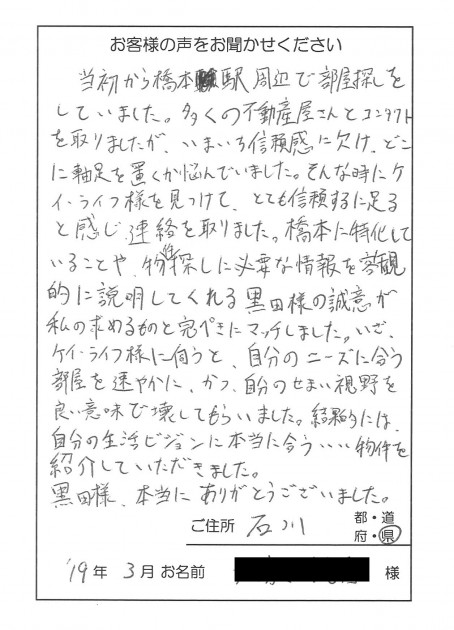 お客様の声をお聞かせください
当初から橋本駅周辺で部屋探しを
していました。多くの不動産屋さんとコンタクト
を取りましたが、いまいち信頼感に欠け、どこ
に軸足を置くか悩んでいました。そんな時にケ
イ・ライフ様を見つけて、とても信頼するに足る
と感じ連絡を取りました。橋本に特化して
いることや、物件探しに必要な情報を客観
的に説明してくれる黒田様の誠意が
私の求めるものと完ぺきにマッチしました。いざ、
ケイ・ライフ様に伺うと、自分のニーズに合う
部屋を速やかに、かつ、自分のせまい視野を
良い意味で壊してもらいました。結果的には、
自分の生活ビジョンに本当に合ういい物件を
紹介していただきました。
黒田様、本当にありがとうございました。
ご住所 石川 都・道府・県
'19年 3月 お名前 様